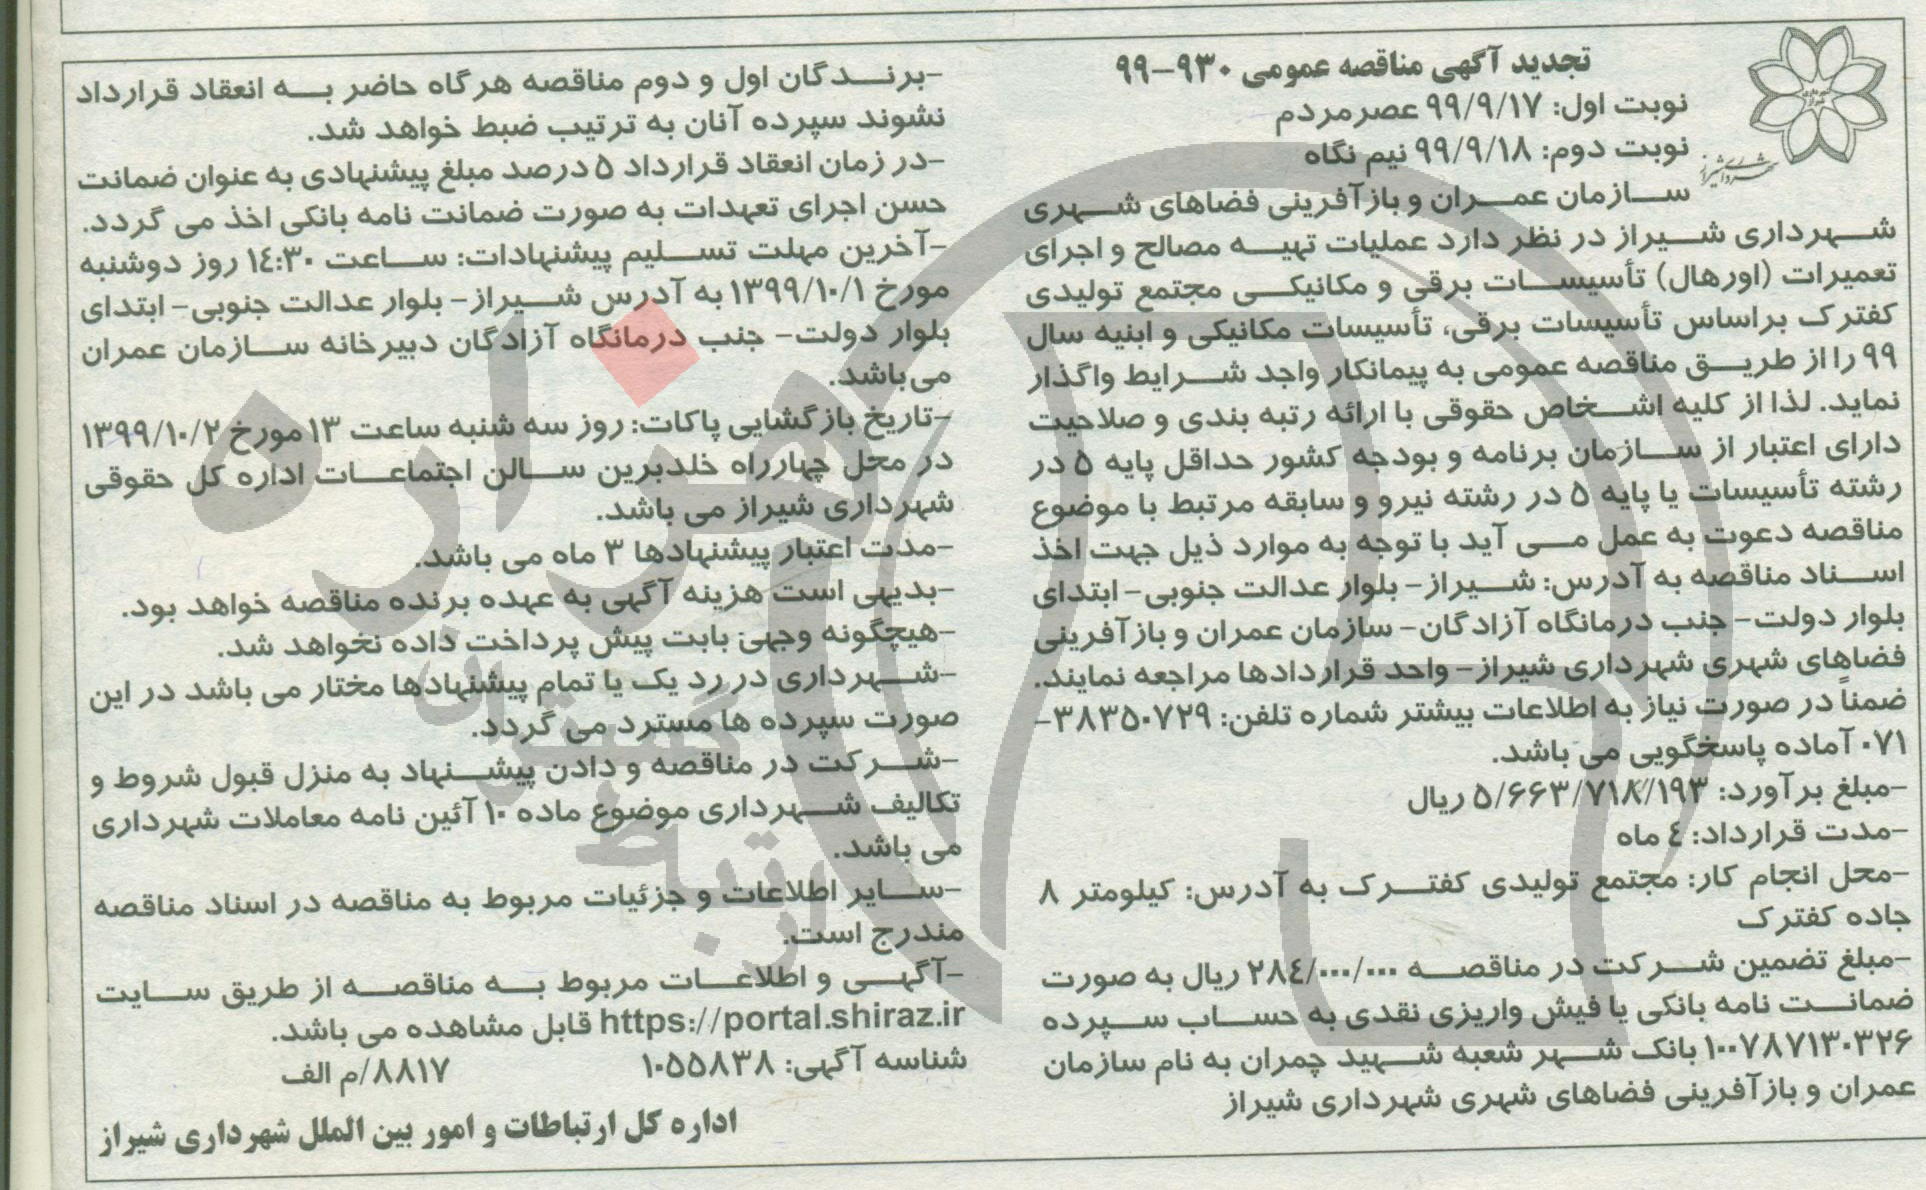 تجدید آگهی مناقصه عمومی ۹۳۰-۹۹
نوبت اول: ۹۹/۹/۱۷ عصر مردم
نوبت دوم: ۹۹/۹/۱۸ نیم نگاه
سازمان عمران و بازآفرینی فضاهای شهری
شهرداری شیراز در نظر دارد عملیات تهیه مصالح و اجرای
تعمیرات (اورهال) تأسیسات برقی و مکانیکی مجتمع تولیدی
کفترک براساس تأسیسات برقی، تأسیسات مکانیکی و ابنیه سال
۹۹ را از طریق مناقصه عمومی به پیمانکار واجد شرایط واگذار
نماید. لذا از کلیه اشخاص حقوقی با ارائه رتبه بندی و صلاحیت
دارای اعتبار از سازمان برنامه و بودجه کشور حداقل پایه ۵ در
رشته تأسیسات یا پایه ۵ در رشته نیرو و سابقه مرتبط با موضوع
مناقصه دعوت به عمل می آید با توجه به موارد ذیل جهت اخذ
اسناد مناقصه به آدرس: شیراز- بلوار عدالت جنوبی- ابتدای
بلوار دولت- جنب درمانگاه آزادگان- سازمان عمران و بازآفرینی
فضاهای شهری شهرداری شیراز- واحد قراردادها مراجعه نمایند.
ضمناً در صورت نیاز به اطلاعات بیشتر شماره تلفن: ۳۸۳۵۰۷۲۹-
۰۷۱ آماده پاسخگویی می باشد.
-مبلغ برآورد: ۵/۶۶۳/۷۱۸/۱۹۳ ریال
-مدت قرارداد: ٤ ماه
-محل انجام کار: مجتمع تولیدی کفترک به آدرس: کیلومتر ۸
جاده کفترک
-مبلغ تضمین شرکت در مناقصه ۲۸٤/۰۰۰/۰۰۰ ریال به صورت
ضمانت نامه بانکی یا فیش واریزی نقدی به حساب سپرده
۱۰۰۷۸۷۱۳۰۳۲۶ بانک شهر شعبه شهید چمران به نام سازمان
عمران و بازآفرینی فضاهای شهری شهرداری شیراز
-برندگان اول و دوم مناقصه هرگاه حاضر به انعقاد قرارداد
نشوند سپرده آنان به ترتیب ضبط خواهد شد.
-در زمان انعقاد قرارداد ۵ درصد مبلغ پیشنهادی به عنوان ضمانت
حسن اجرای تعهدات به صورت ضمانت نامه بانکی اخذ می گردد.
-آخرین مهلت تسلیم پیشنهادات: ساعت ۱٤:۳۰ روز دوشنبه
مورخ ۱۳۹۹/۱۰/۱ به آدرس شیراز- بلوار عدالت جنوبی- ابتدای
بلوار دولت- جنب درمانگاه آزادگان دبیرخانه سازمان عمران
می‌باشد.
-تاریخ بازگشایی پاکات: روز سه شنبه ساعت ۱۳ مورخ ۱۳۹۹/۱۰/۲
در محل چهارراه خلدبرین سالن اجتماعات اداره کل حقوقی
شهرداری شیراز می باشد.
-مدت اعتبار پیشنهادها ۳ ماه می باشد.
-بدیهی است هزینه آگهی به عهده برنده مناقصه خواهد بود.
-هیچگونه وجهی بابت پیش پرداخت داده نخواهد شد.
-شهرداری در رد یک یا تمام پیشنهادها مختار می باشد در این
صورت سپرده ها مسترد می گردد.
-شرکت در مناقصه و دادن پیشنهاد به منزل قبول شروط و
تکالیف شهرداری موضوع ماده ۱۰ آئین نامه معاملات شهرداری
می باشد.
-سایر اطلاعات و جزئیات مربوط به مناقصه در اسناد مناقصه
مندرج است.
-آگهی و اطلاعات مربوط به مناقصه از طریق سایت
https://portal.shiraz.ir قابل مشاهده می باشد.
شناسه آگهی: ۱۰۵۵۸۳۸ ۸۸۱۷/م الف
اداره کل ارتباطات و امور بین الملل شهرداری شیراز
شهرداری شیراز
هزاره